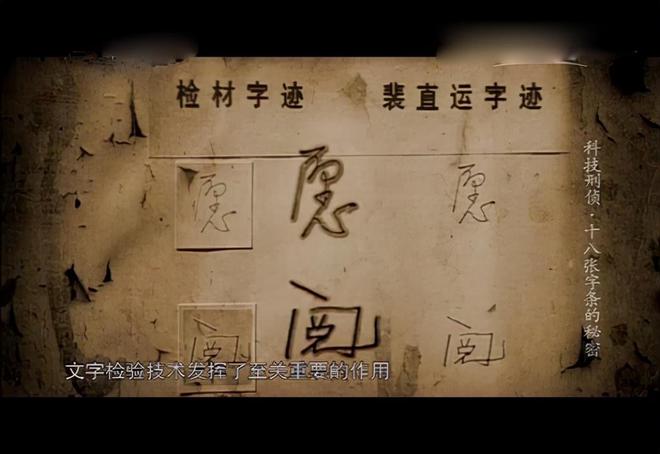 检材字迹 裴直运字迹
愿 愿 愿
科技刑侦·十八张字条的秘密
文字检验技术发挥了至关重要的作用